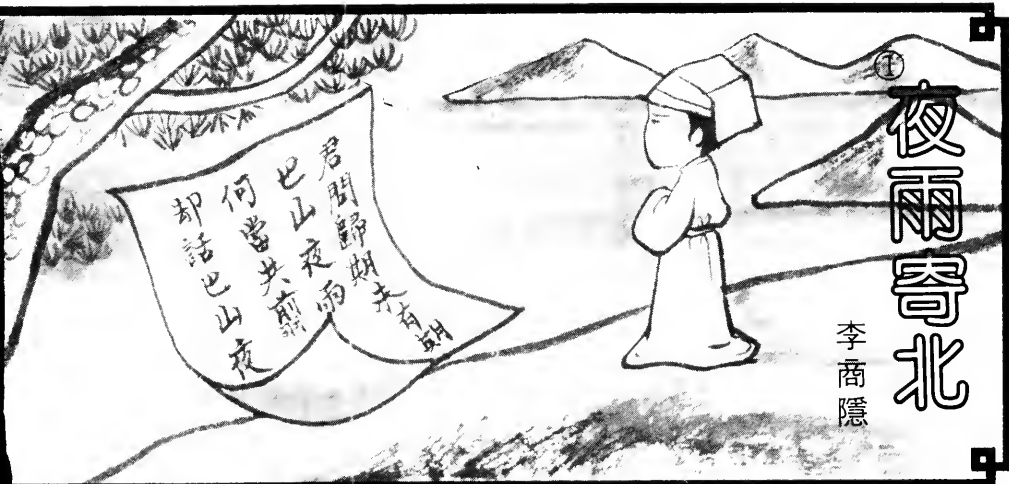 ①夜雨寄北
李商隱
君問歸期未有期
巴山夜雨
何當共剪
却話巴山夜